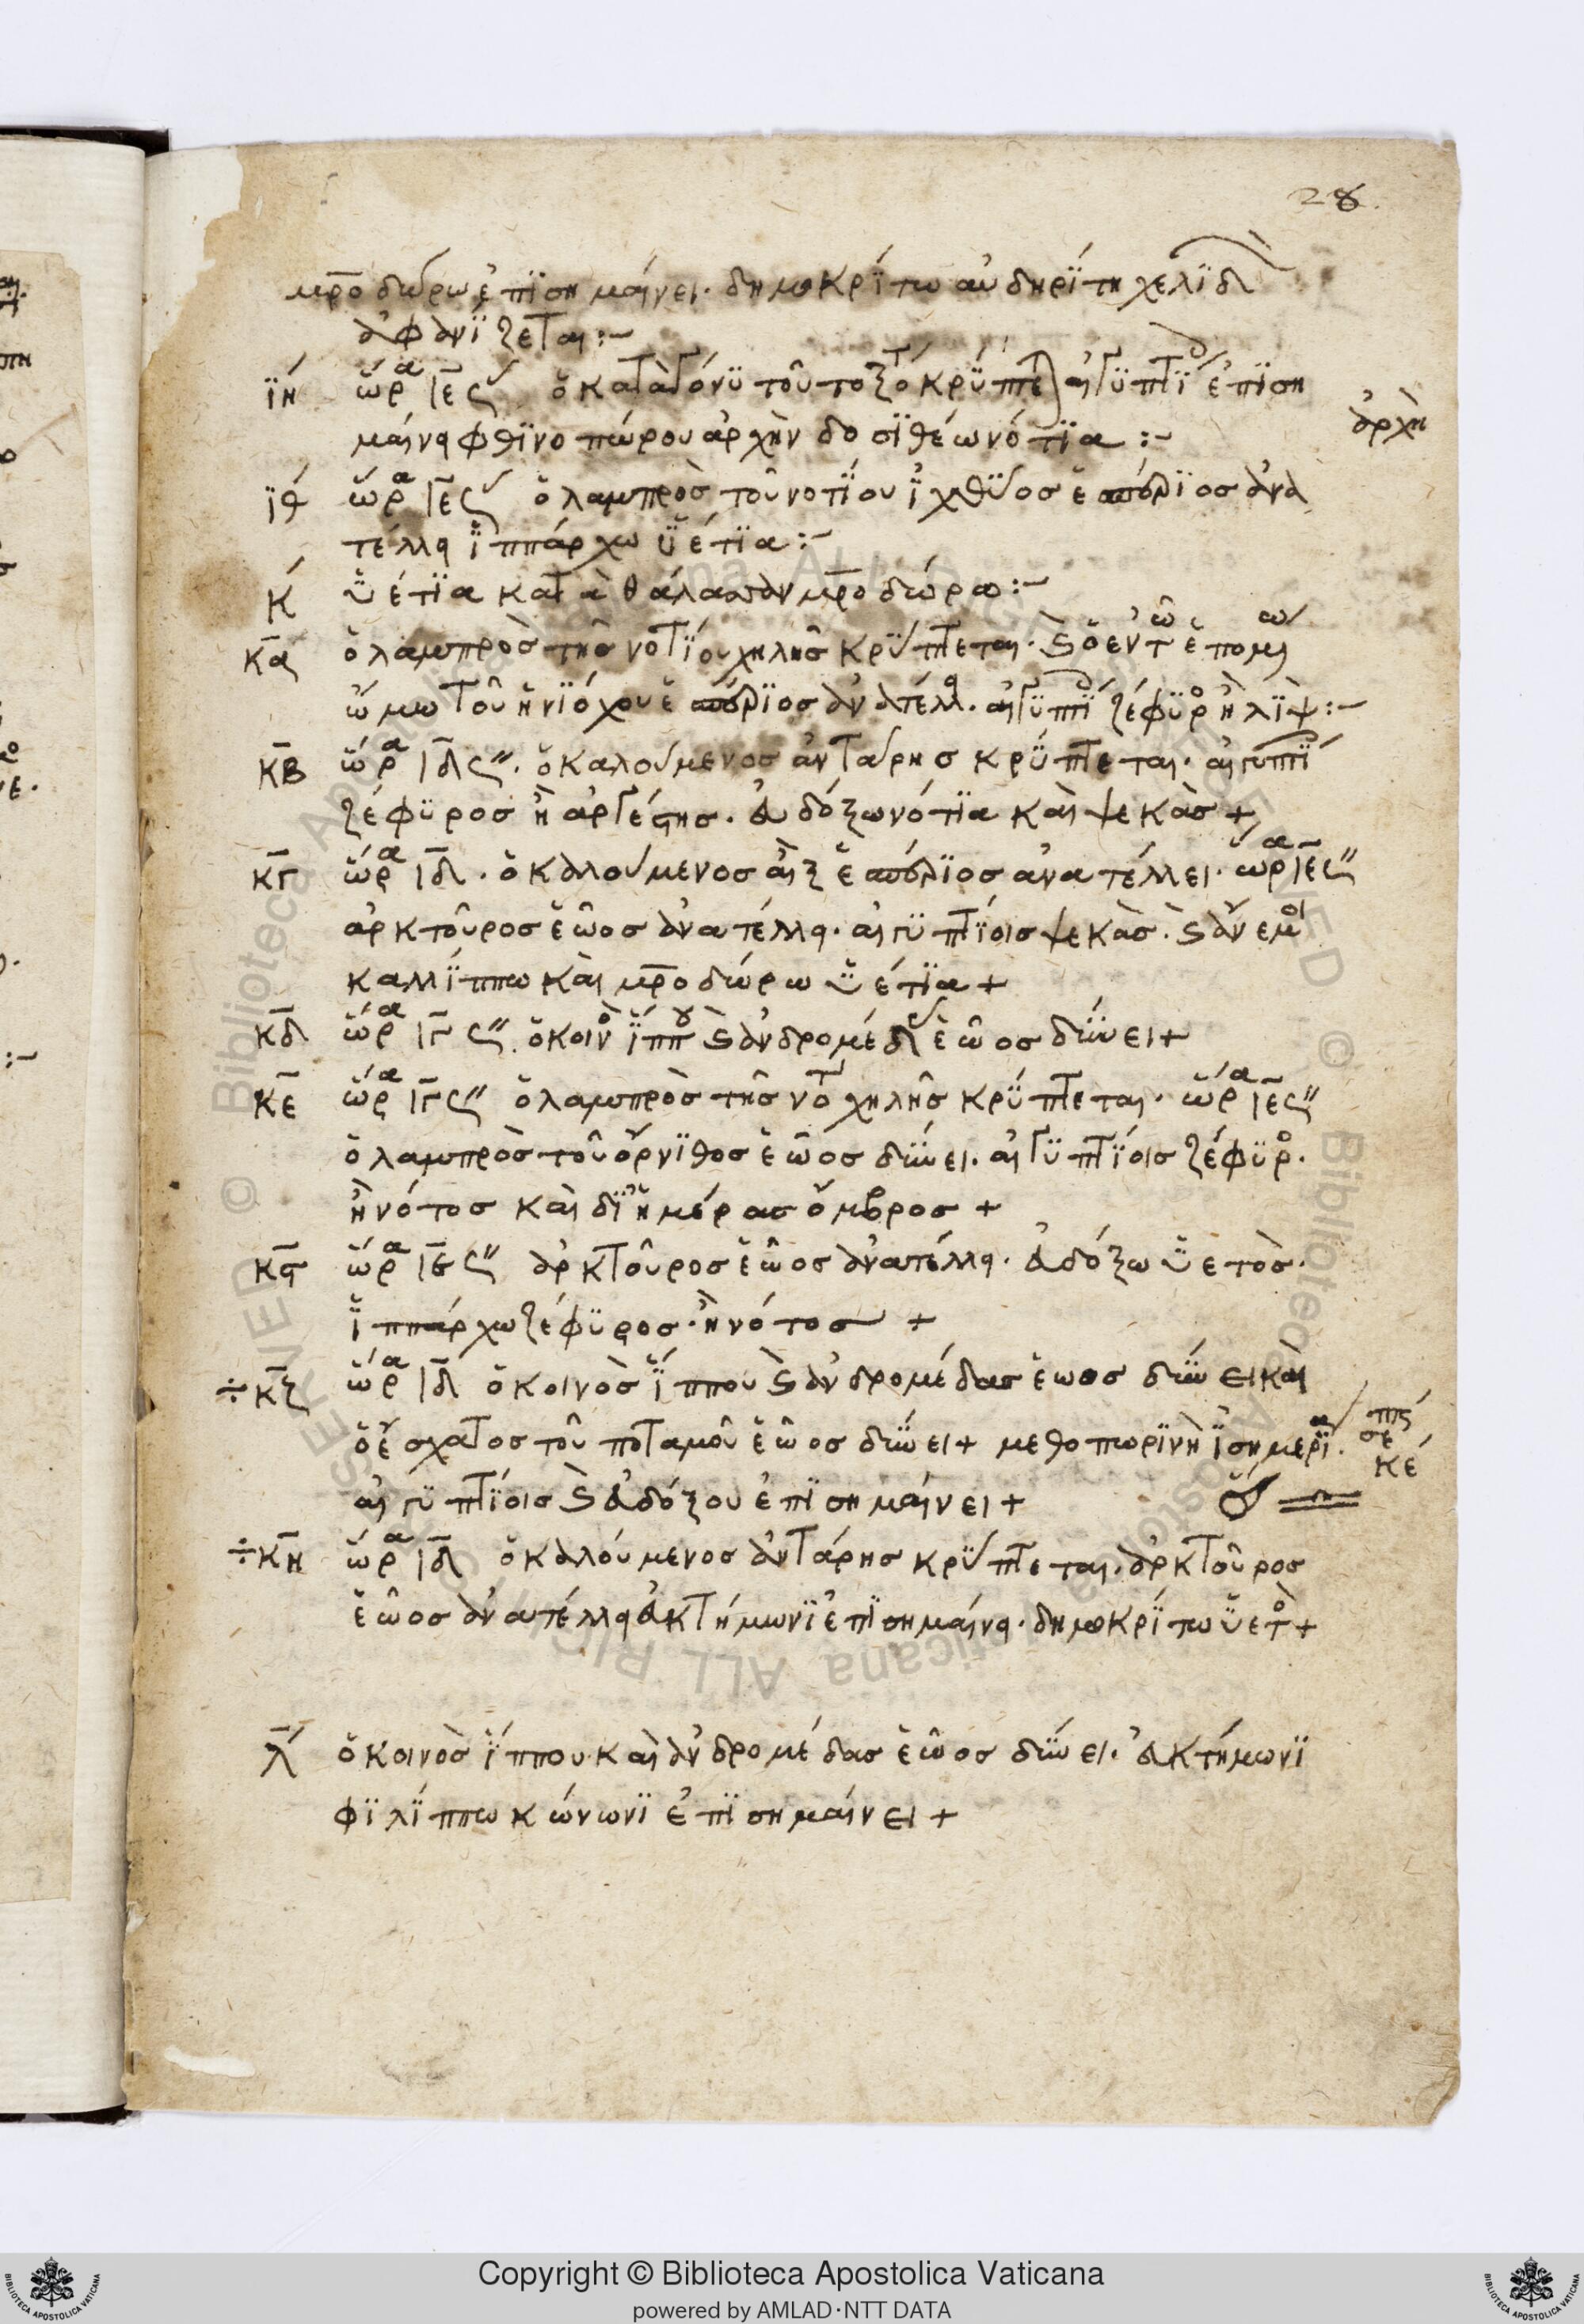 28
μρο δώρω ἐπϊσημαίνει. δημοκρίτω αὐδηρίτη χελϊδ
ἀφανϊζεται :-
ϊη ὥρα ιε ς ὁ κατὰ γόνϋ τοῦ τοξό κρϋπτε αἰγϋπτϊ ἐπϊση
μαίνει φθϊνοπώρου ἀρχὴν δοσϊθέω νότϊα :-
ἀρχὴ
ϊθ ὥρα ιε ς ὁ λαμπρὸσ τοῦ νοτϊου ϊχθϋοσ ἑσπέρϊοσ ἀνα
τέλλει ϊππάρχω ϋέτϊα :-
κ ϋέτϊα κατὰ θάλασσαν μρο δώρω :-
κα ὁ λαμπρὸσ τῆσ νοτϊου χηλῆσ κρϋπτεται. καὶ ὁ ἐν τ ἑπομ
ὤμω τοῦ ἡνϊόχου ἑσπέρϊοσ ἀνατέλλει. αἰγϋπτϊ ζέφϋρο ἢ λϊψ :-
κβ ὥρα ιδ ς". ὁ καλούμενοσ ἀντάρησ κρϋπτεται. αἰγυπτϊ
ζέφϋροσ ἢ ἀργέστησ. εὐδόξω νότϊα καὶ ψεκάσ +
κγ ὥρα ιδ. ὁ καλούμενοσ αἲξ ἑσπέρϊοσ ἀνατέλλει. ὥρα ιε ς"
ἀρκτοῦροσ ἑῶοσ ἀνατέλλει. αἰγϋπτϊοισ ψεκάσ. καὶ ἄνεμοι
καλλϊππω καὶ μρο δώρω ϋέτϊα +
κδ ὥρα ιγ ς". ὁ κοινὸ ϊππου καὶ ἀνδρομέδ ἑῶοσ δϋνει +
κε ὥρα ιγ ς" ὁ λαμπρὸσ τῆσ νοτ χηλῆσ κρϋπτεται. ὥρα ιε ς"
ὁ λαμπρὸσ τοῦ ὄρνϊθοσ ἑῶοσ δϋνει. αἰγϋπτϊοισ ζέφϋρο.
ἢ νότοσ καὶ δϊ ἡμέρασ ὄμβροσ +
κϛ ὥρα ιε ς" ἀρκτοῦροσ ἑῶοσ ἀνατέλλει. εὐδόξω ϋετόσ.
ϊππάρχω ζέφϋροσ. ἢ νότοσ +
÷ κζ ὥρα ιδ ὁ κοινὸσ ϊππου καὶ ἀνδρομέδασ ἑωοσ δϋνει καὶ
ὁ ἔσχατοσ τοῦ ποταμοῦ ἑῶοσ δϋνει + μεθοπωρϊνὴ ϊσημερϊα.
κέ
αἰγϋπτϊοισ καὶ εὐδόξου ἐπϊσημαίνει +
÷ κη ὥρα ιδ ὁ καλούμενοσ ἀντάρησ κρϋπτεται. ἀρκτοῦροσ
ἑῶοσ ἀνατέλλει εὐκτήμωνϊ ἐπϊσημαίνει. δημοκρίτω ϋετὸ +
λ ὁ κοινὸσ ϊππου καὶ ἀνδρομέδασ ἑῶοσ δϋνει. εὐκτήμωνϊ
φϊλϊππω κώνωνϊ ἐπϊσημαίνει +
Copyright © Biblioteca Apostolica Vaticana
powered by AMLAD·NTT DATA